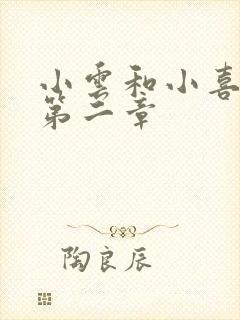 小雲和小喜
第二章
陶良辰